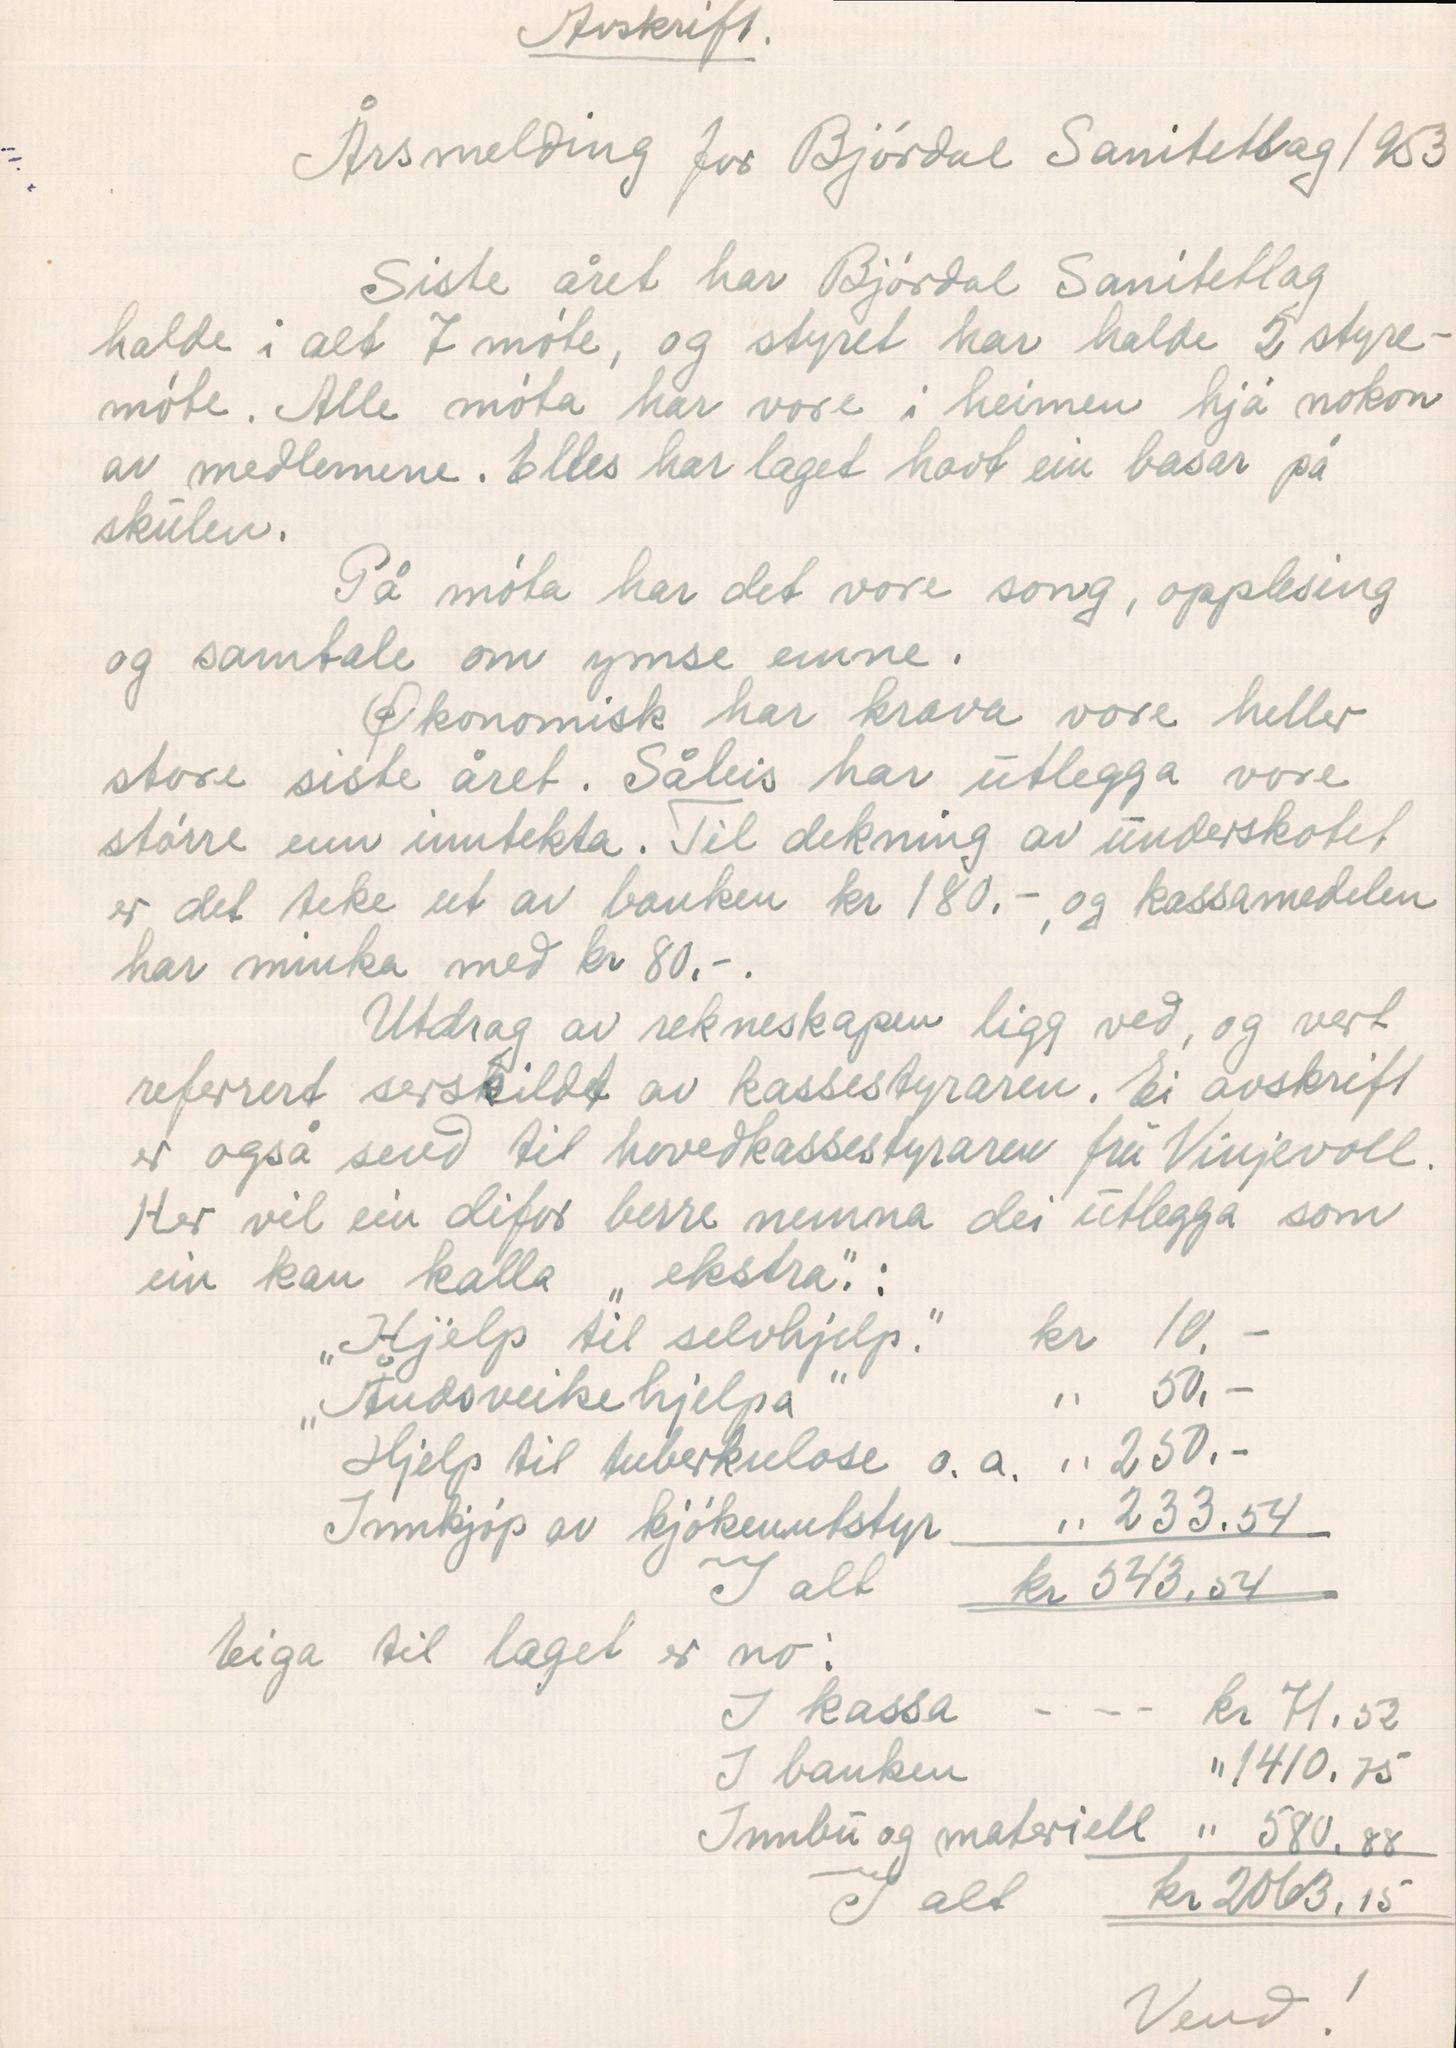 Avskrift.
Årsmelding for Bjórdal Sanitetlag 1953
Siste året har Bjórdal Sanitetlag
halde i alt 7 móte, og styret har halde 2 styre-
móte. Alle móta har vore i heimen hjå nokon
av medlemene. Elles har laget havt ein basar på
skulen.
På móta har det vore song, opplesing
og samtale om ymse emne.
Økonomisk har krava vore heller
store siste året. Såleis har utlegga vore
stórre enn inntekta. Til dekning av underskotet
er det teke ut av banken kr 180.-, og kassamedelen
har minka med kr 80.-.
Utdrag av rekneskapen ligg ved, og vert
referrert serskildt av kassestyraren. Ei avskrift
er også send til hovedkassestyraren fru Vinjevoll.
Her vil ein difor berre nemna dei utlegga som
ein kan kalla „ekstra":
„Hjelp til selvhjelp." kr 10.-
„Åndsveikehjelpa" " 50.-
Hjelp til tuberkulose o.a. " 250.-
Innkjóp av kjókenutstyr " 233.54
I alt kr 543.54
Eiga til laget er no:
I kassa - - - kr 71.52
I banken " 1410.75
Innbu og materiell " 580.88
I alt kr 2063.15
Vend!